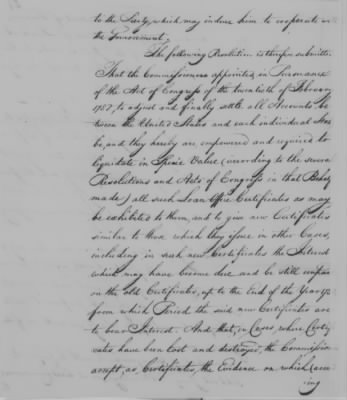 to the Society, which may induce him to cooperate in
the Government.
The following Resolution is therefore submitted.
That the Commissioners appointed in Pursuance
of the Act of Congress of the twentieth of February
to adjust and finally settle all Accounts be
tween the United States and each individual State
be, and they hereby are, empowered and required to
liquidate in Specie Value (according to the several
Resolutions and Acts of Congress in that Behalf
made) all such Loan Office Certificates as may
be exhibited to them, and to give new Certificates
similar to those which they issue in other Cases,
including in such new Certificates the Interest
which may have become due and be still unpaid
on the old Certificates, up to the End of the Year
from which Period the said new Certificates are
to bear Interest. And that, in Cases, where Certifi
cates have been lost and destroyed, the Commissioners
accept, as Certificates, the Evidence on which
ing